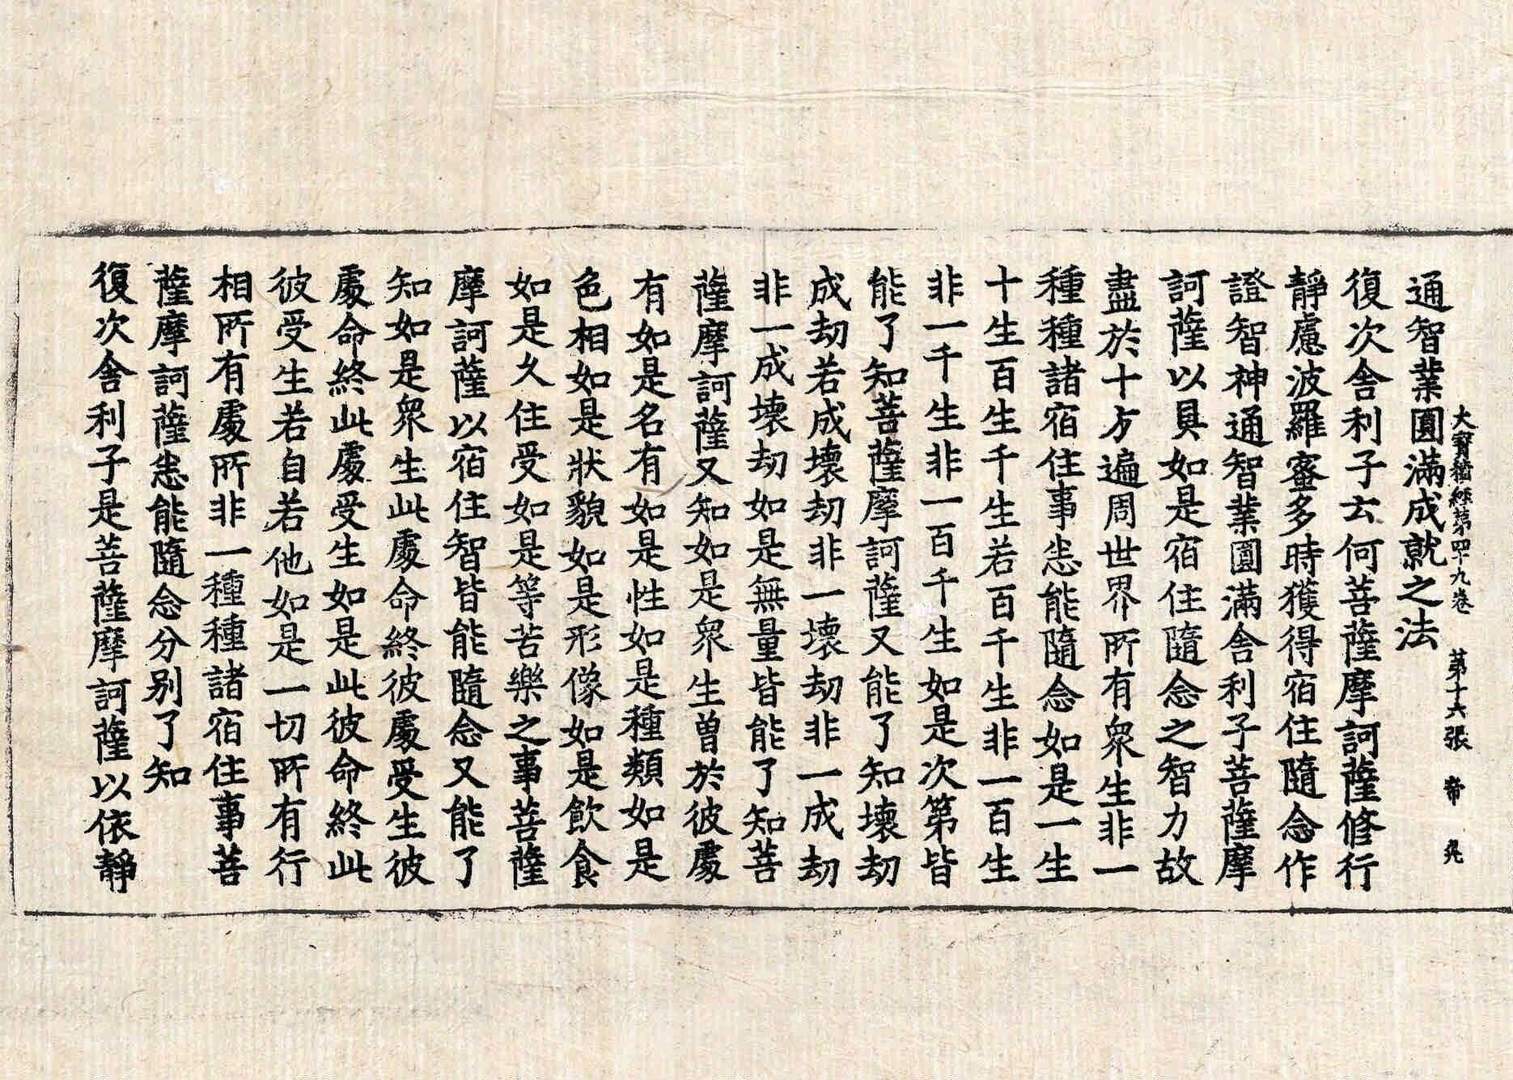 大寶積經第四十九卷 第十六張 帝
通智業圓滿成就之法
復次舍利子云何菩薩摩訶薩修行
靜慮波羅蜜多時獲得宿住隨念作
證智神通智業圓滿舍利子菩薩摩
訶薩以具如是宿住隨念之智力故
盡於十方遍周世界所有衆生非一
種種諸宿住事悉能隨念如是一生
十生百生千生若百千生非一百生
非一千生非一百千生如是次第皆
能了知菩薩摩訶薩又能了知壞劫
成劫若成壞劫非一壞劫非一成劫
非一成壞劫如是無量皆能了知菩
薩摩訶薩又知如是衆生曾於彼處
有如是名有如是性如是種類如是
色相如是狀貌如是形像如是飲食
如是久住受如是等苦樂之事菩薩
摩訶薩以宿住智皆能隨念又能了
知如是衆生此處命終彼處受生彼
處命終此處受生如是此彼命終此
彼受生若自若他如是一切所有行
相所有處所非一種種諸宿住事菩
薩摩訶薩悉能隨念分別了知
復次舍利子是菩薩摩訶薩以依靜